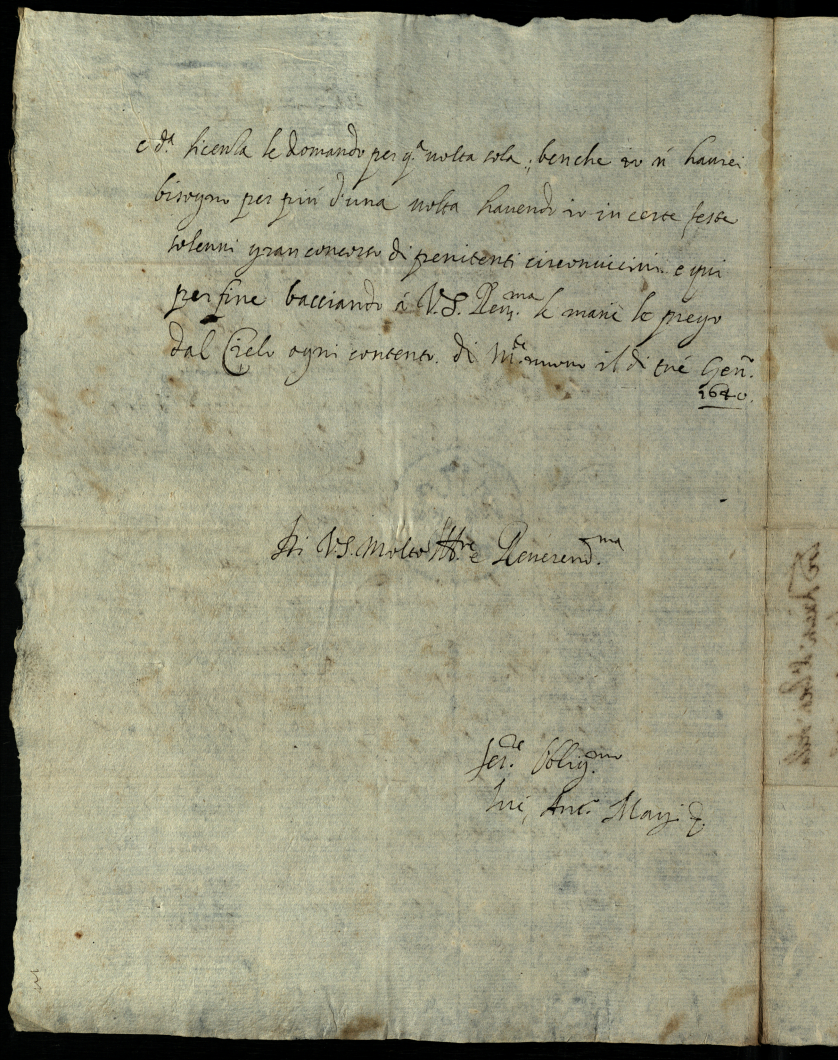 e d.ª licenza le domando per q.ª uolta sola, benche io n haurei
bisogno per più d'una uolta hauendo io in certe feste
solenni gran concorso di penitenti circonuicini e qui
per fine bacciando à V.S. Reu.ma le mani le prego
dal Cielo ogni contento. di M.te nuouo il di tré Gen.
1640.
Di V.S. Molto Ill.re e Reuerend.ma
Ser.re Oblig.mo
Ant.